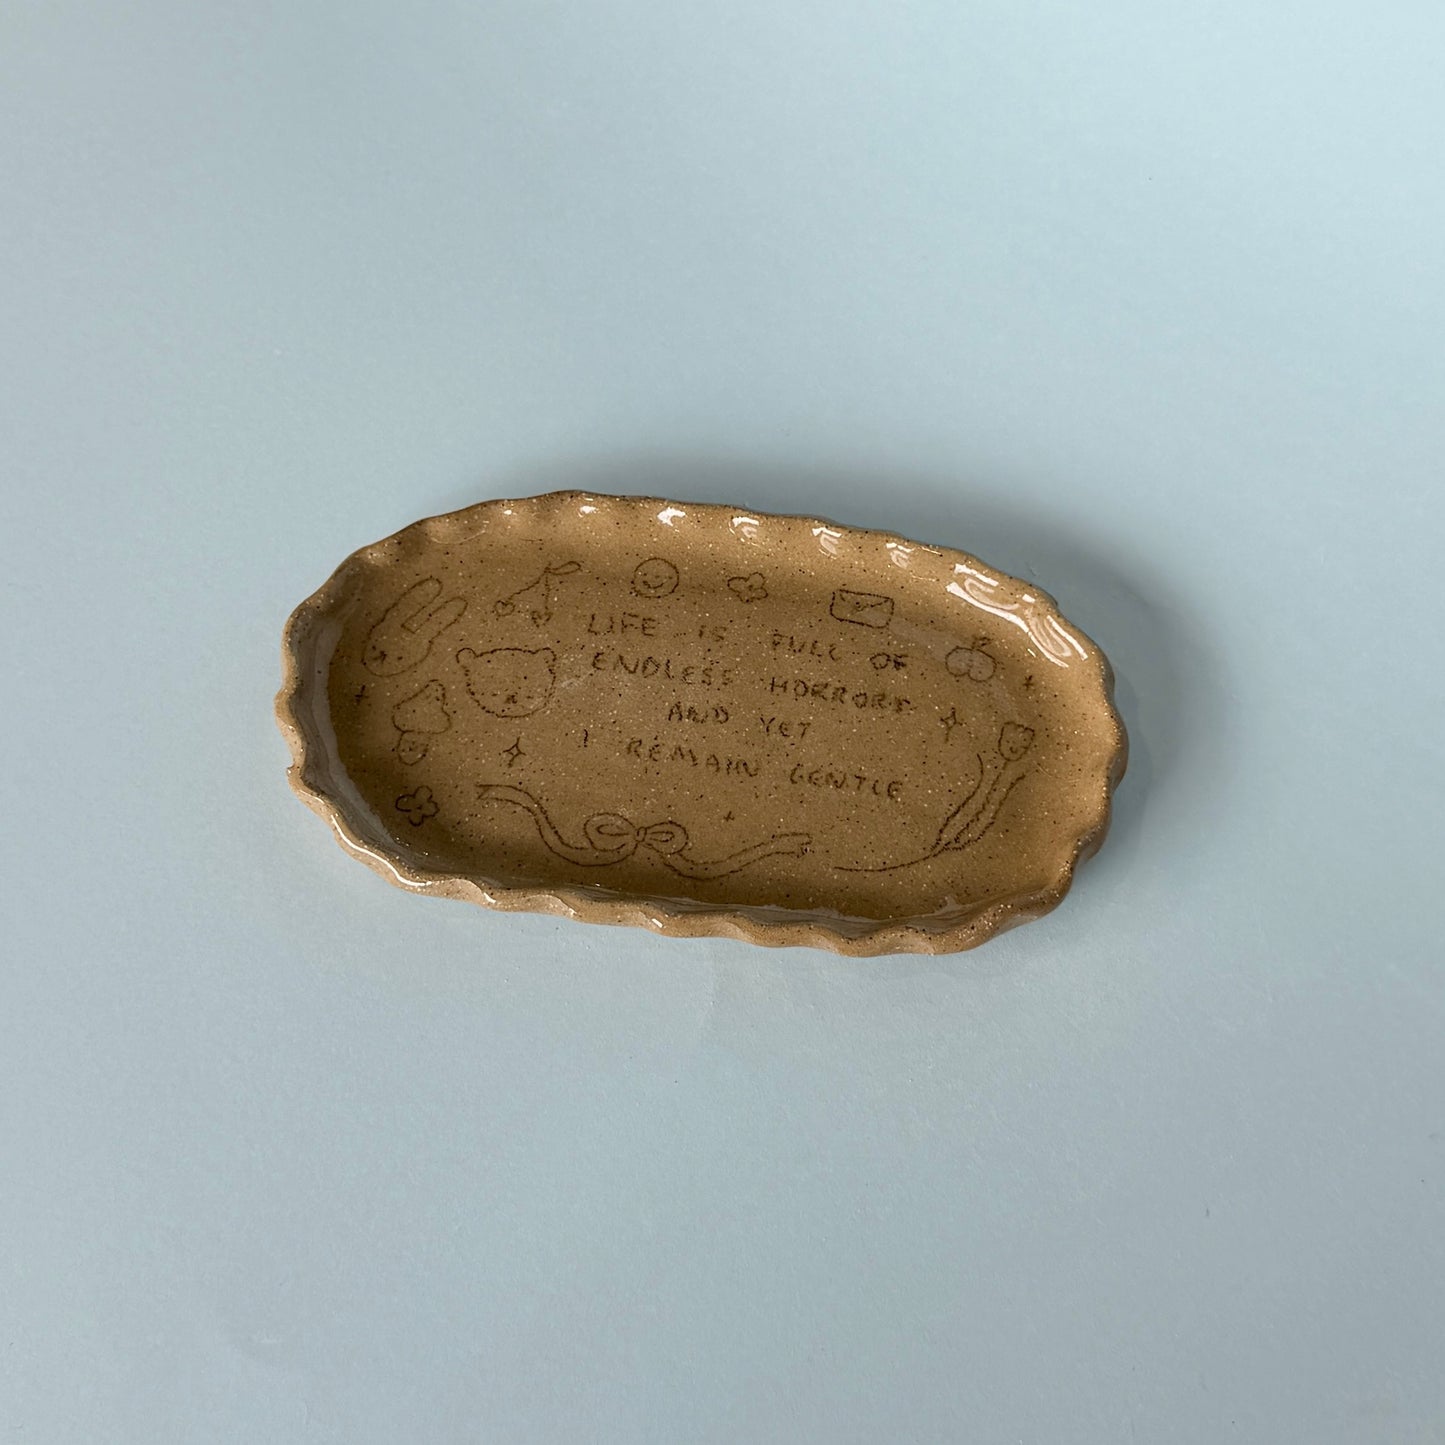 LIFE IS FULL OF
ENDLESS HORRORS
AND YET
I REMAIN GENTLE